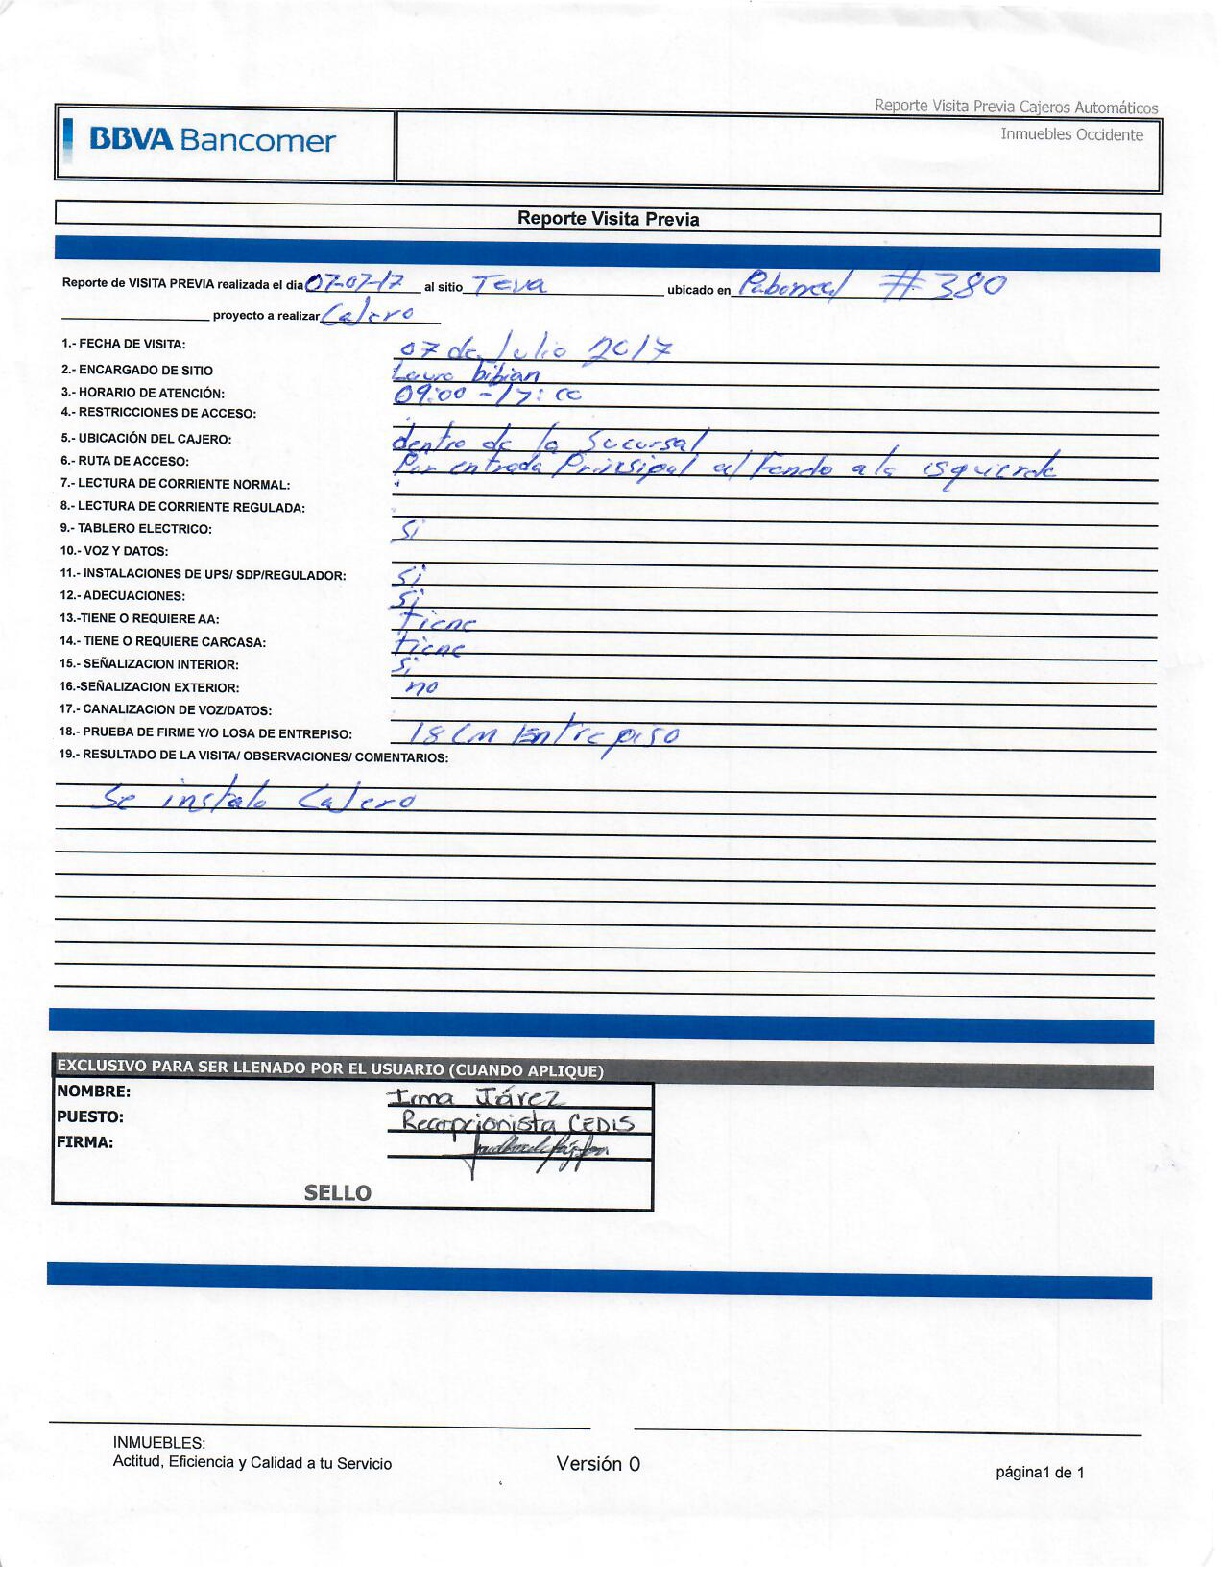 Reporte Visita Previa Cajeros Automáticos
BBVA Bancomer
Inmuebles Occidente
Reporte Visita Previa
Reporte de VISITA PREVIA realizada el dia 07-07-17 al sitio Teva ubicado en #380
proyecto a realizar Cajero
1.- FECHA DE VISITA: 07 de Julio 2017
2.- ENCARGADO DE SITIO Laura bibian
3.- HORARIO DE ATENCIÓN: 09:00 - 17:00
4.- RESTRICCIONES DE ACCESO:
5.- UBICACIÓN DEL CAJERO: dentro de la Sucursal
6.- RUTA DE ACCESO: Por entrada Prinsipal al fondo a la isquierda
7.- LECTURA DE CORRIENTE NORMAL:
8.- LECTURA DE CORRIENTE REGULADA:
9.- TABLERO ELECTRICO: Si
10.- VOZ Y DATOS:
11.- INSTALACIONES DE UPS/ SDP/REGULADOR: Si
12.- ADECUACIONES: Si
13.-TIENE O REQUIERE AA: tiene
14.- TIENE O REQUIERE CARCASA: tiene
15.- SEÑALIZACION INTERIOR: Si
16.-SEÑALIZACION EXTERIOR: no
17.- CANALIZACION DE VOZ/DATOS:
18.- PRUEBA DE FIRME Y/O LOSA DE ENTREPISO: 18 cm Entrepiso
19.- RESULTADO DE LA VISITA/ OBSERVACIONES/ COMENTARIOS:
Se instalo Cajero
EXCLUSIVO PARA SER LLENADO POR EL USUARIO (CUANDO APLIQUE)
NOMBRE: Irma Járez
PUESTO: Recepcionista CEDIS
FIRMA:
SELLO
INMUEBLES:
Actitud, Eficiencia y Calidad a tu Servicio
Versión 0
página1 de 1